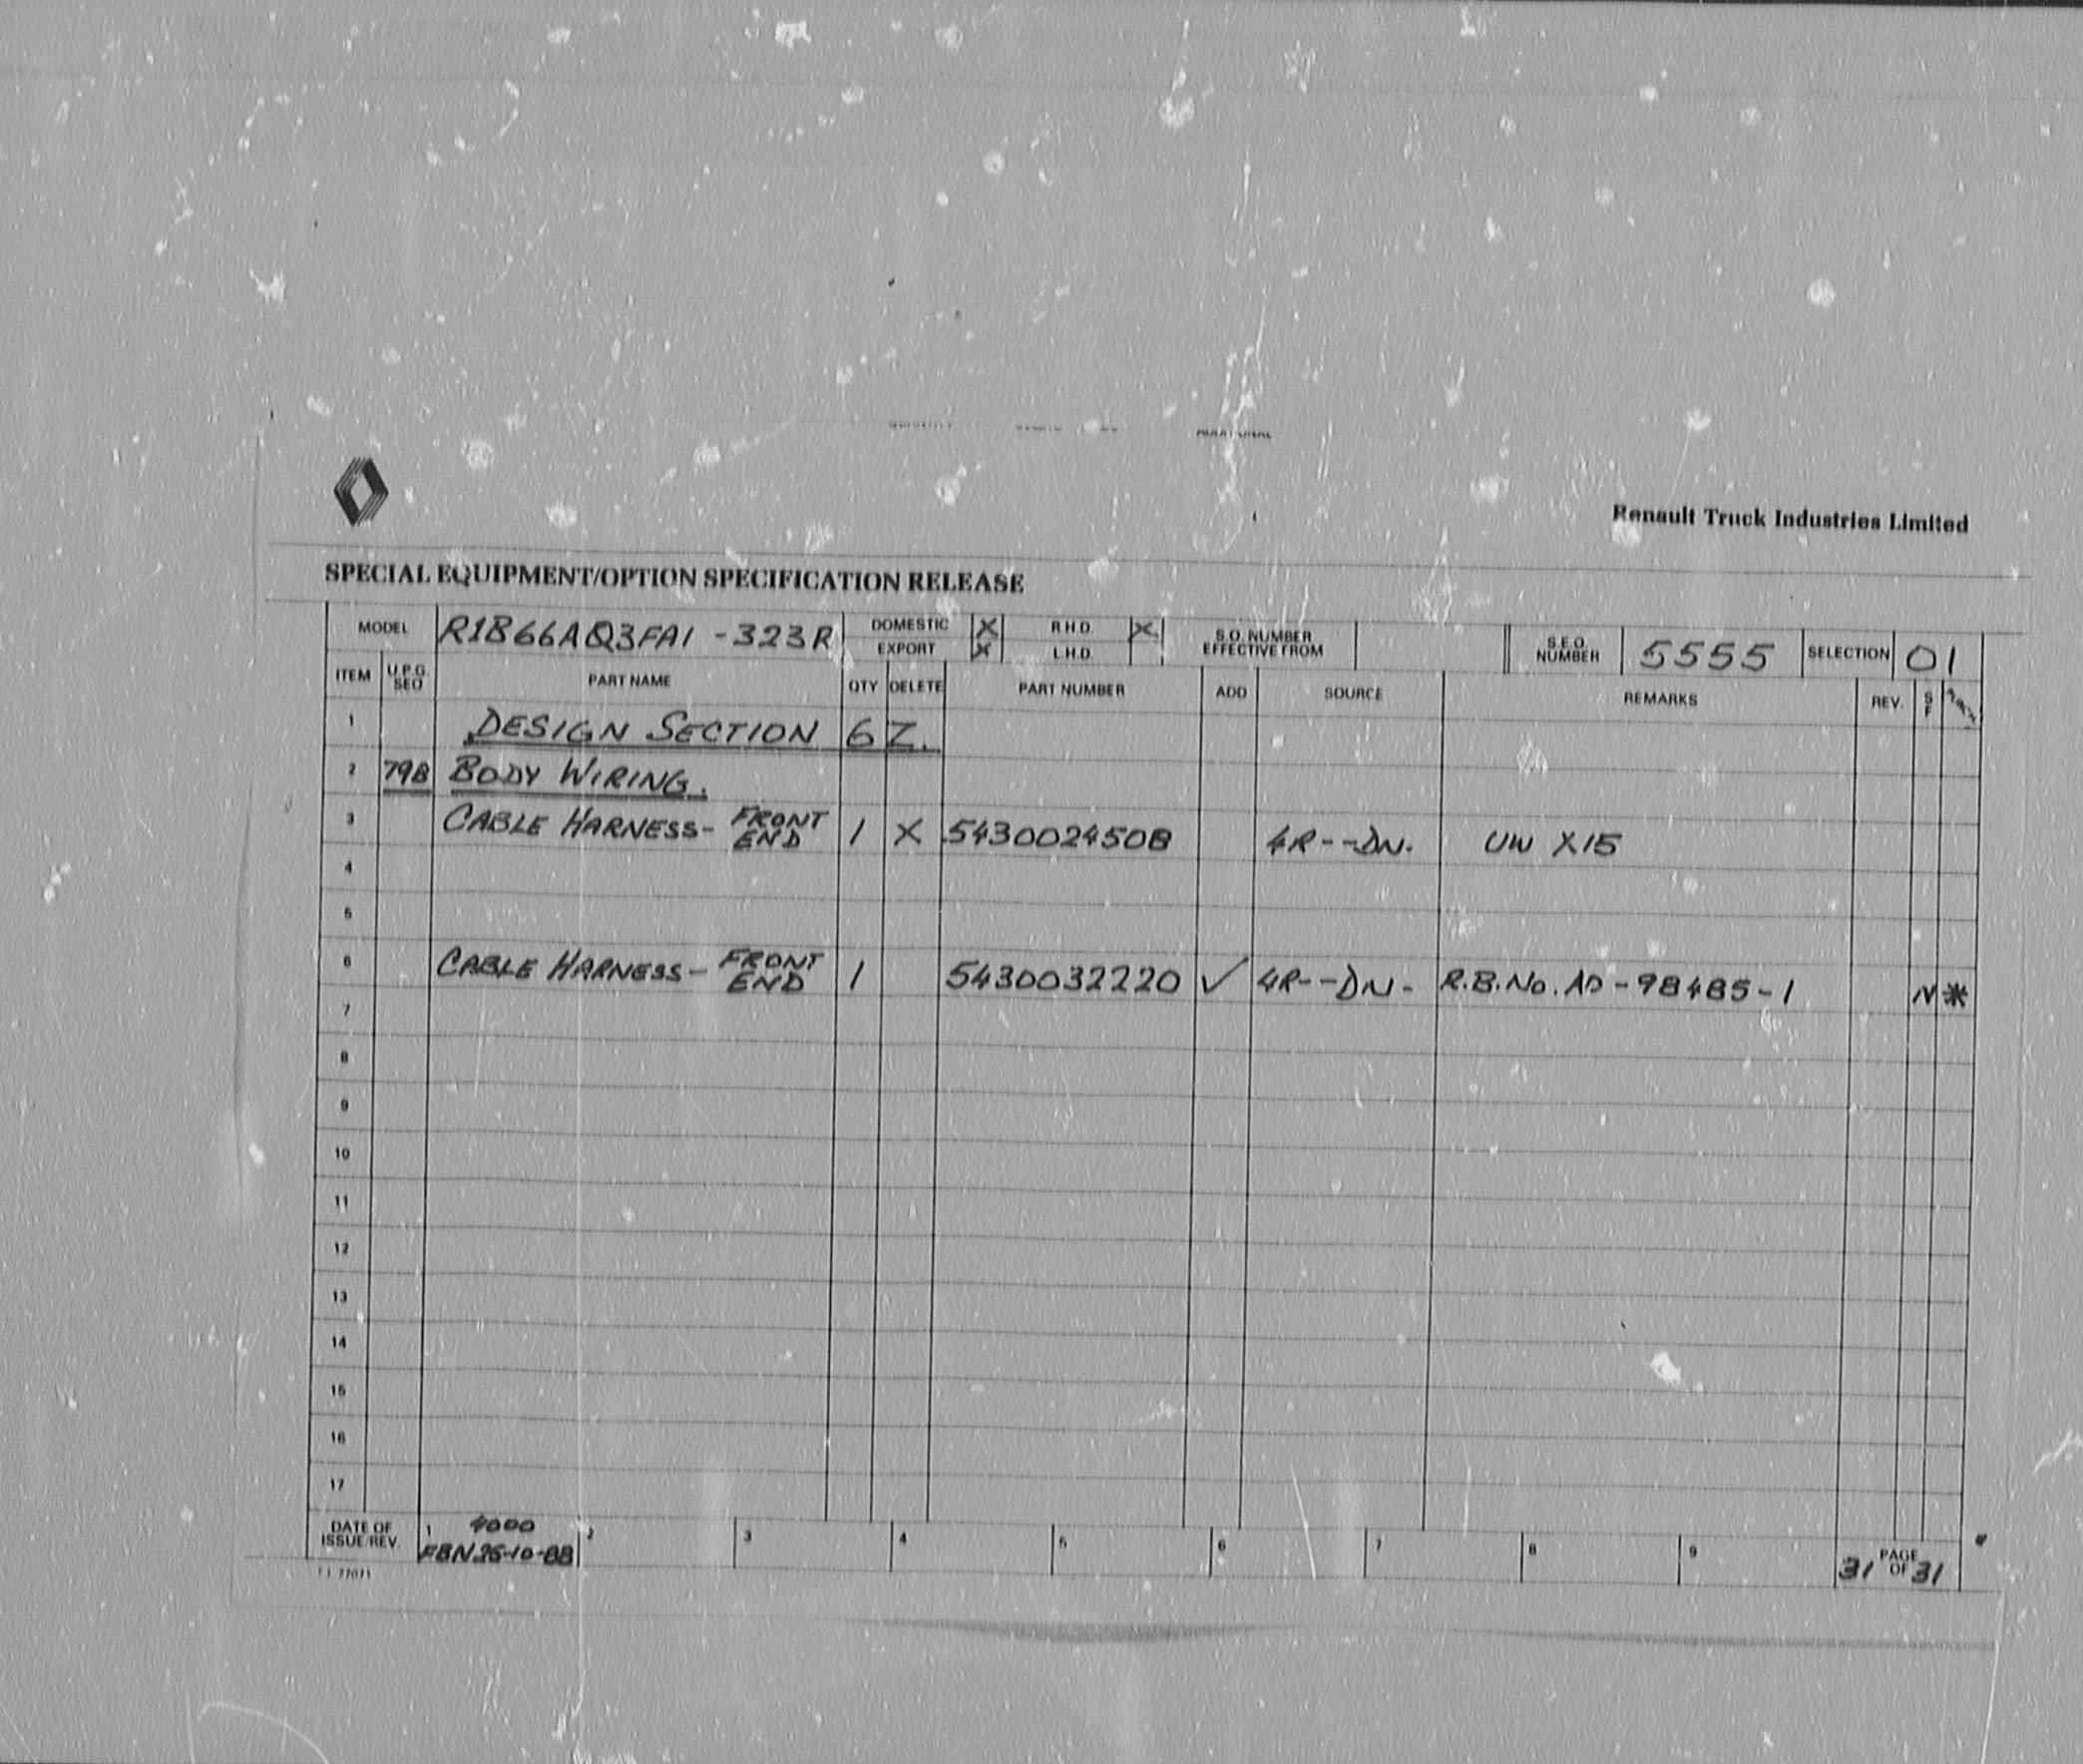 Renault Truck Industries Limited
SPECIAL EQUIPMENT/OPTION SPECIFICATION RELEASE
MODEL R1B66AQ3FA1 - 323R DOMESTIC X R.H.D. X S.O. NUMBER EFFECTIVE FROM S.E.O. NUMBER 5555 SELECTION 01
EXPORT X L.H.D.
ITEM U.P.G. SEO PART NAME QTY DELETE PART NUMBER ADD SOURCE REMARKS REV. S F
1 DESIGN SECTION 6 Z.
2 79B BODY WIRING.
3 CABLE HARNESS- FRONT END 1 X 5430024508 4R--DN. UW X15
4
5
6 CABLE HARNESS- FRONT END 1 5430032220 ✓ 4R--DN- R.B.No. AD-98485-1 N *
7
8
9
10
11
12
13
14
15
16
17
DATE OF ISSUE/REV. 1 4000 2 3 4 5 6 7 8 9 31 PAGE OF 31